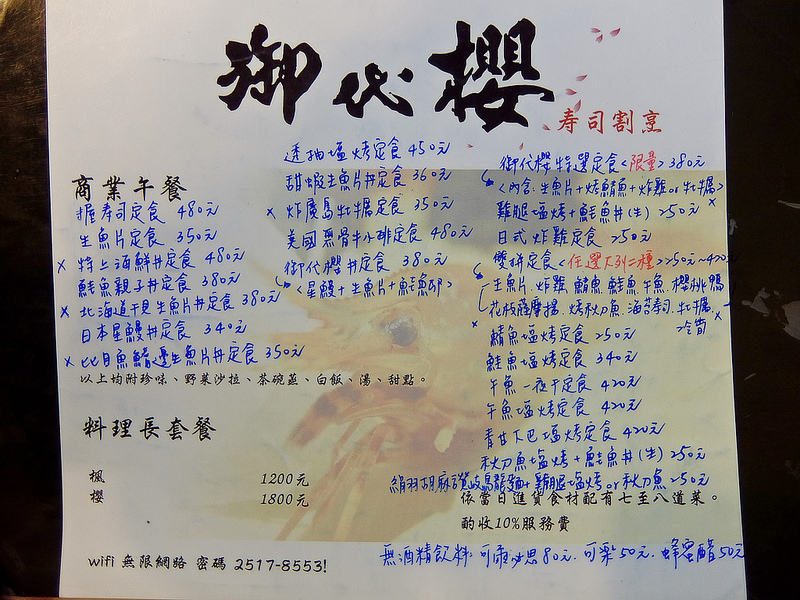 御代櫻
寿司割烹
商業午餐
握寿司定食 480元
生魚片定食 350元
x 特上海鮮丼定食 480元
鮭魚親子丼定食 380元
x 北海道干貝生魚片丼定食 380元
日本星鰻丼定食 340元
x 比目魚鰭邊生魚片丼定食 350元
以上均附珍味、野菜沙拉、茶碗蒸、白飯、湯、甜點。
透抽塩烤定食 450元
甜蝦生魚片丼定食 360元
x 炸廣島牡蠣定食 350元
美國無骨牛小排定食 480元
御代櫻丼定食 380元
<星鰻+生魚片+鮭魚卵>
御代櫻特選定食<限量>380元
<內含:生魚片+烤鯖魚+炸雞or牡蠣>
x
雞腿塩烤+鮭魚丼(生) 250元
日式炸雞定食 250元
雙拼定食<任選下列二種>250元~420元
生魚片.炸雞.鯖魚.鮭魚.午魚.櫻桃鴨
花枝薩摩揚.烤秋刀魚.海苔壽司.牡蠣.
x
x
鯖魚塩烤定食 250元
鮭魚塩烤定食 340元
午魚一夜干定食 420元
午魚塩烤定食 420元
青甘下巴塩烤定食 420元
秋刀魚塩烤+鮭魚丼(生) 250元
絹羽胡麻讚岐烏龍麵+雞腿塩烤or秋刀魚 250元
料理長套餐
楓 1200元
櫻 1800元
依當日進貨食材配有七至八道菜。
酌收10%服務費
wifi 無限網路 密碼 2517-8553!
無酒精飲料:可爾必思80元.可樂50元.蜂蜜醋50元